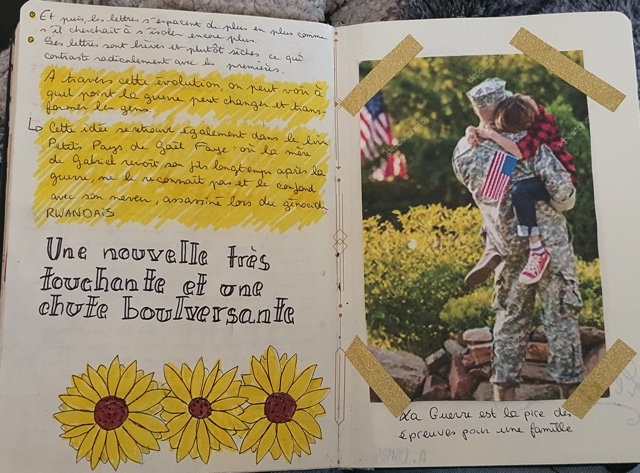 Et puis, les lettres s'espacent de plus en plus comme
s'il cherchait à s'isoler encore plus.
Ses lettres sont brèves et plutôt sèches ce qui
contraste radicalement avec les premières.
A travers cette évolution, on peut voir à
quel point la guerre peut changer et trans-
former les gens.
Cette idée se retrouve également dans le livre
Petits Pays de Gaël Faye : où la mère
de Gabriel revoit son fils longtemps après la
guerre, ne le reconnaît pas et le confond
avec son neveu, assassiné lors du génocide
RWANDAIS
Une nouvelle très
touchante et une
chute boulversante
La Guerre est la pire des
épreuves pour une famille